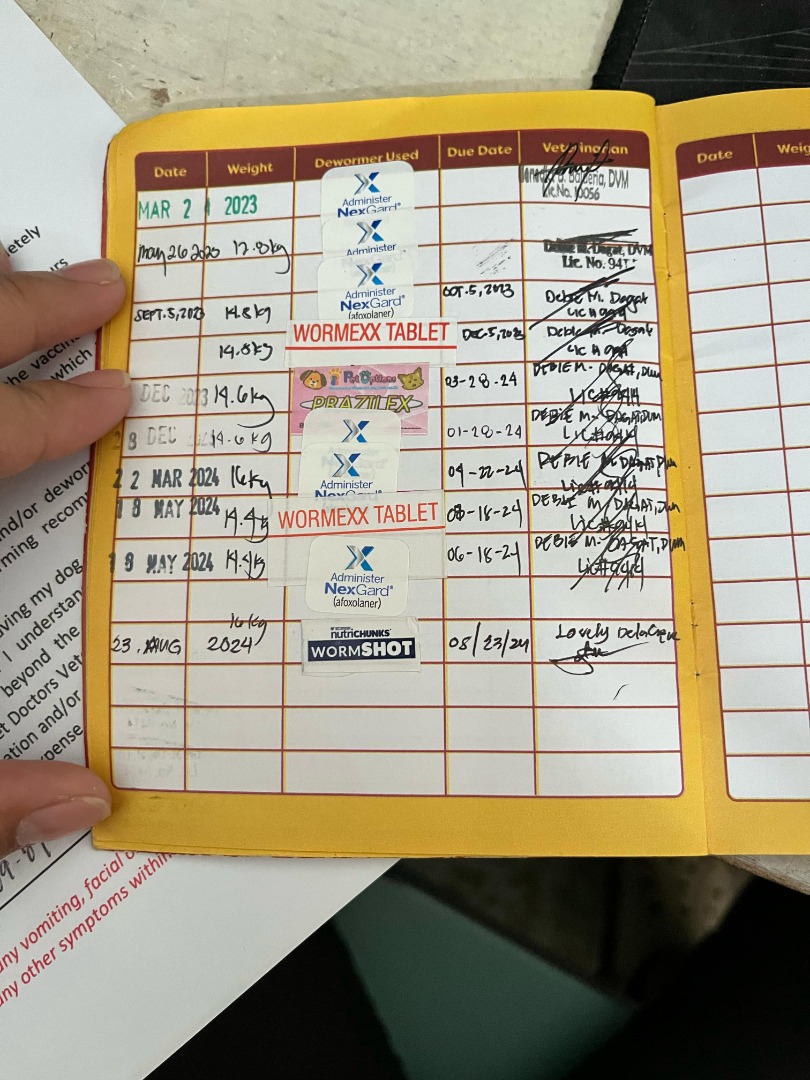 Date Weight Dewormer Used Due Date Veterinarian
MAR 2 2023 Administer NexGard DVM Lic.No. 10056
May 26 2023 17.8kg Administer Debie M. Dagat, DVM Lic. No. 941
SEPT. 5, 2023 14.8kg Administer NexGard® (afoxolaner) OCT. 5, 2023 Debie M. Dagat
14.8kg WORMEXX TABLET DEC. 5, 2023 Debie M. Dagat
DEC 2023 14.6kg Pet Options PRAZILEX 03-28-24 DEBIE M. DAGAT, DVM
8 DEC 14.6kg 01-28-24 DEBIE M. DAGAT, DVM
22 MAR 2024 16kg Administer NexGard 04-22-24 DEBIE M. DAGAT, DVM
18 MAY 2024 14.4kg WORMEXX TABLET 08-18-24 DEBIE M. DAGAT, DVM
18 MAY 2024 14.4kg Administer NexGard® (afoxolaner) 06-18-24 DEBIE M. DAGAT, DVM
16kg
23. AUG 2024 nutriCHUNKS WORMSHOT 08/23/24 Lovely Dela Cruz
Date Weig
letely
he vaccin
which
nd/or dewor
rming recom
ving my dog
I understan
beyond the
et Doctors Vet
ation and/or
pense
any vomiting, facial
any other symptoms within